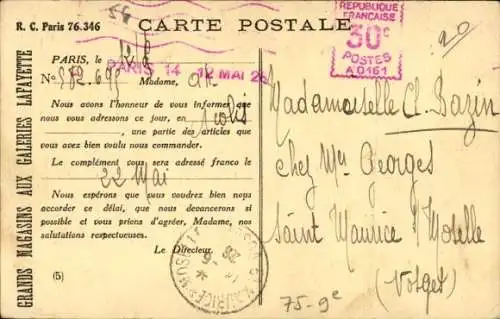 R. C. Paris 76.346
CARTE POSTALE
RÉPUBLIQUE
FRANÇAISE
30c
POSTES
A 0161
20
GRANDS MAGASINS AUX GALERIES LAFAYETTE
PARIS, le
PARIS 14 12 MAI 26
No 572.695
Madame,
Nous avons l'honneur de vous informer que
nous vous adressons ce jour, en colis
, une partie des articles que
vous avez bien voulu nous commander.
Le complément vous sera adressé franco le
22 Mai
Nous espérons que vous voudrez bien nous
accorder ce délai, que nous devancerons si
possible et vous prions d'agréer, Madame, nos
salutations respectueuses.
Le Directeur.
(5)
Mademoiselle Cl. Bazin
chez Mr Georges
Saint Maurice s/ Moselle
(Vosges)
75-9e